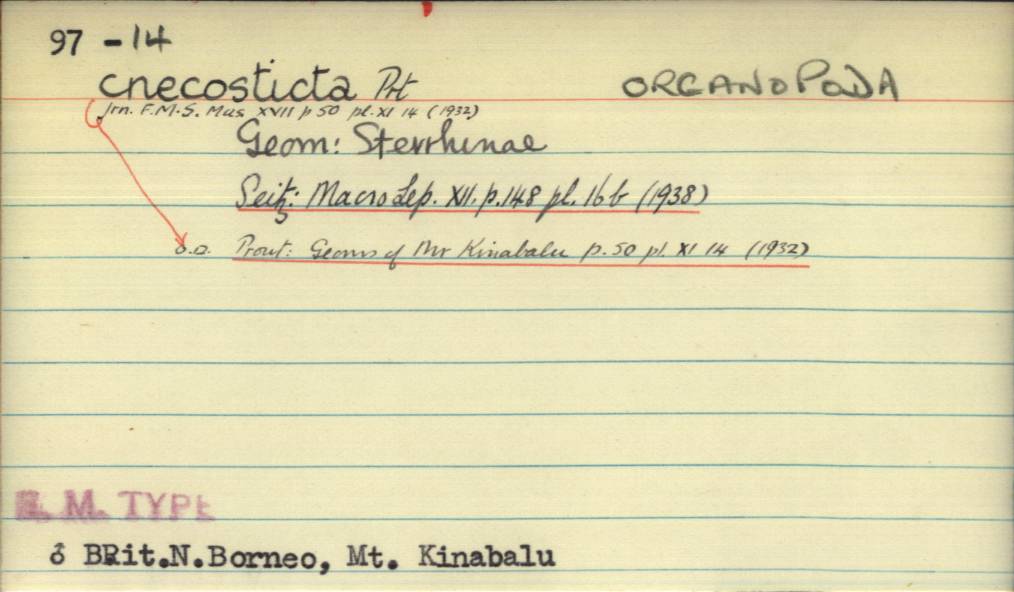 97 -14
cnecosticta Prt ORGANOPODA
Jrn. F.M.S. Mus XVII p 50 pl. XI 14 (1932)
Geom: Sterrhinae
Seitz: Macro Lep. XII. p.148 pl. 16b (1938)
o.d. Prout: Geoms of Mt Kinabalu p.50 pl. XI 14 (1932)
B. M. TYPE
♂ BRit.N.Borneo, Mt. Kinabalu